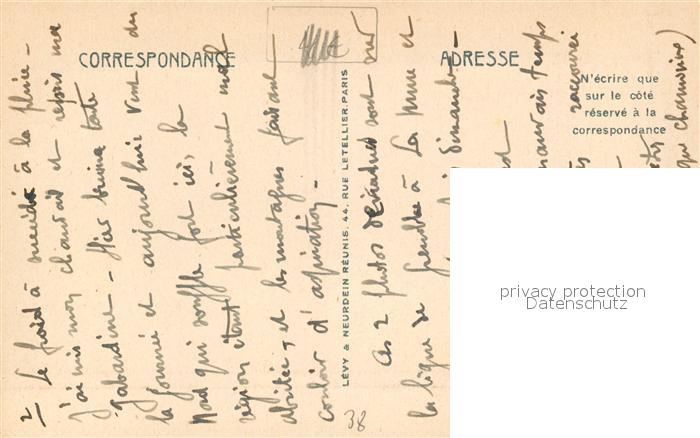 CORRESPONDANCE
ADRESSE
N'écrire que
sur le côté
réservé à la
correspondance
LÉVY & NEURDEIN RÉUNIS, 44, RUE LETELLIER, PARIS
2 - Le froid à succédé à la pluie -
J'ai mis mon chandail et repris ma
gabardine - Hier brume toute
la journée et aujourd'hui vent du
Nord qui souffle fort ici, la
région étant particulièrement mal
abritée, et les montagnes faisant
couloir d'aspiration -
Ces 2 photos sont sur
la ligne de Grenoble à La Mure et
Dimanche -
mauvais temps
raccourci
que chamoisine)
38
privacy protection
Datenschutz